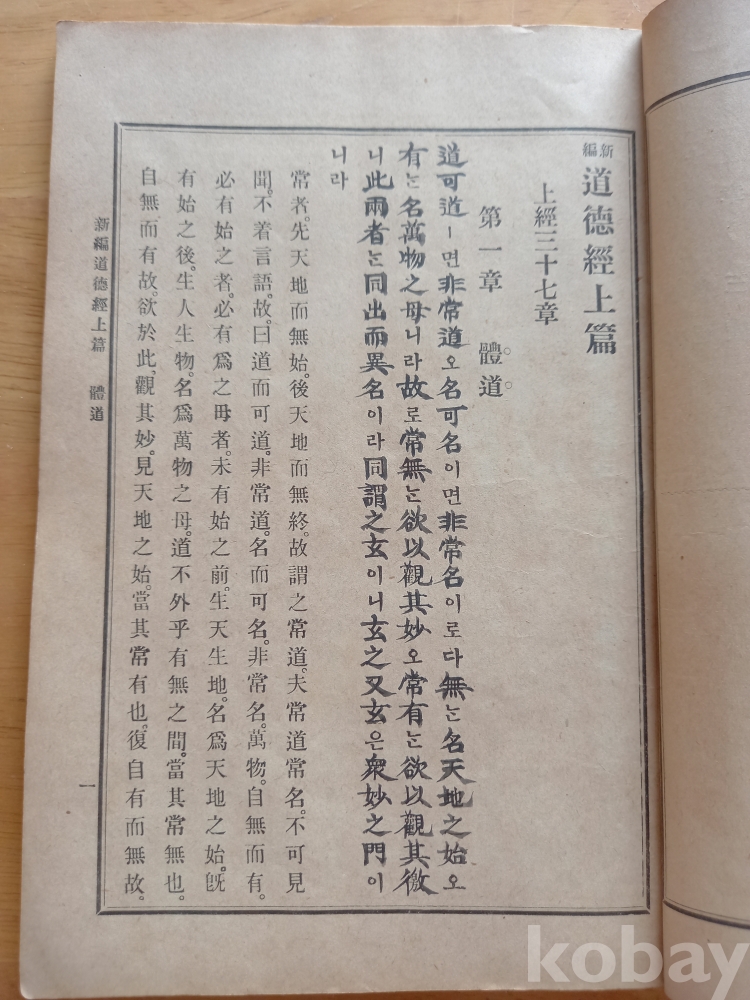 新編 道德經上篇
上經三十七章
第一章 體道
道可道ㅣ면非常道오名可名이면非常名이로다無는名天地之始오
有는名萬物之母니라故로常無는欲以觀其妙오常有는欲以觀其徼
니此兩者는同出而異名이라同謂之玄이니玄之又玄은衆妙之門이
니라
常者。先天地而無始。後天地而無終。故謂之常道。夫常道常名。不可見
聞。不着言語。故。曰道而可道。非常道。名而可名。非常名。萬物。自無而有。
必有始之者。必有爲之母者。未有始之前。生天生地。名爲天地之始。旣
有始之後。生人生物。名爲萬物之母。道不外乎有無之間。當其常無也。
自無而有。故。欲於此。觀其妙。見天地之始。當其常有也。復自有而無。故。
新編道德經上篇 體道
一
kobay